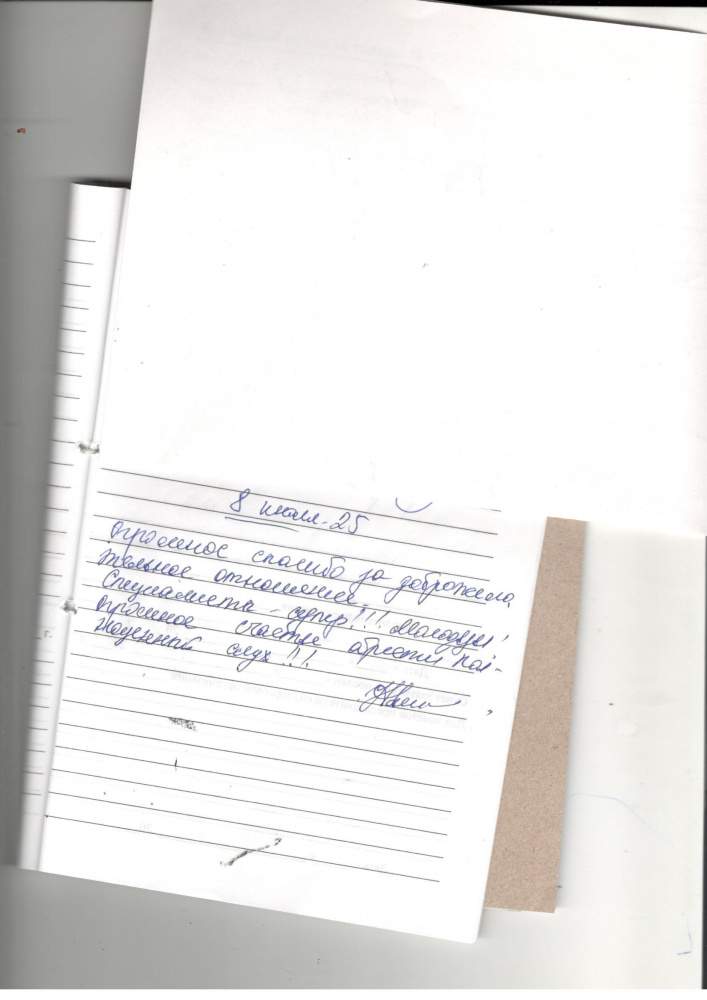 8 июля - 25
огромное спасибо за доброжела
тельное отношение.
Специалисты - супер!!! Молодцы!
огромное счастье обрести
слух!!!